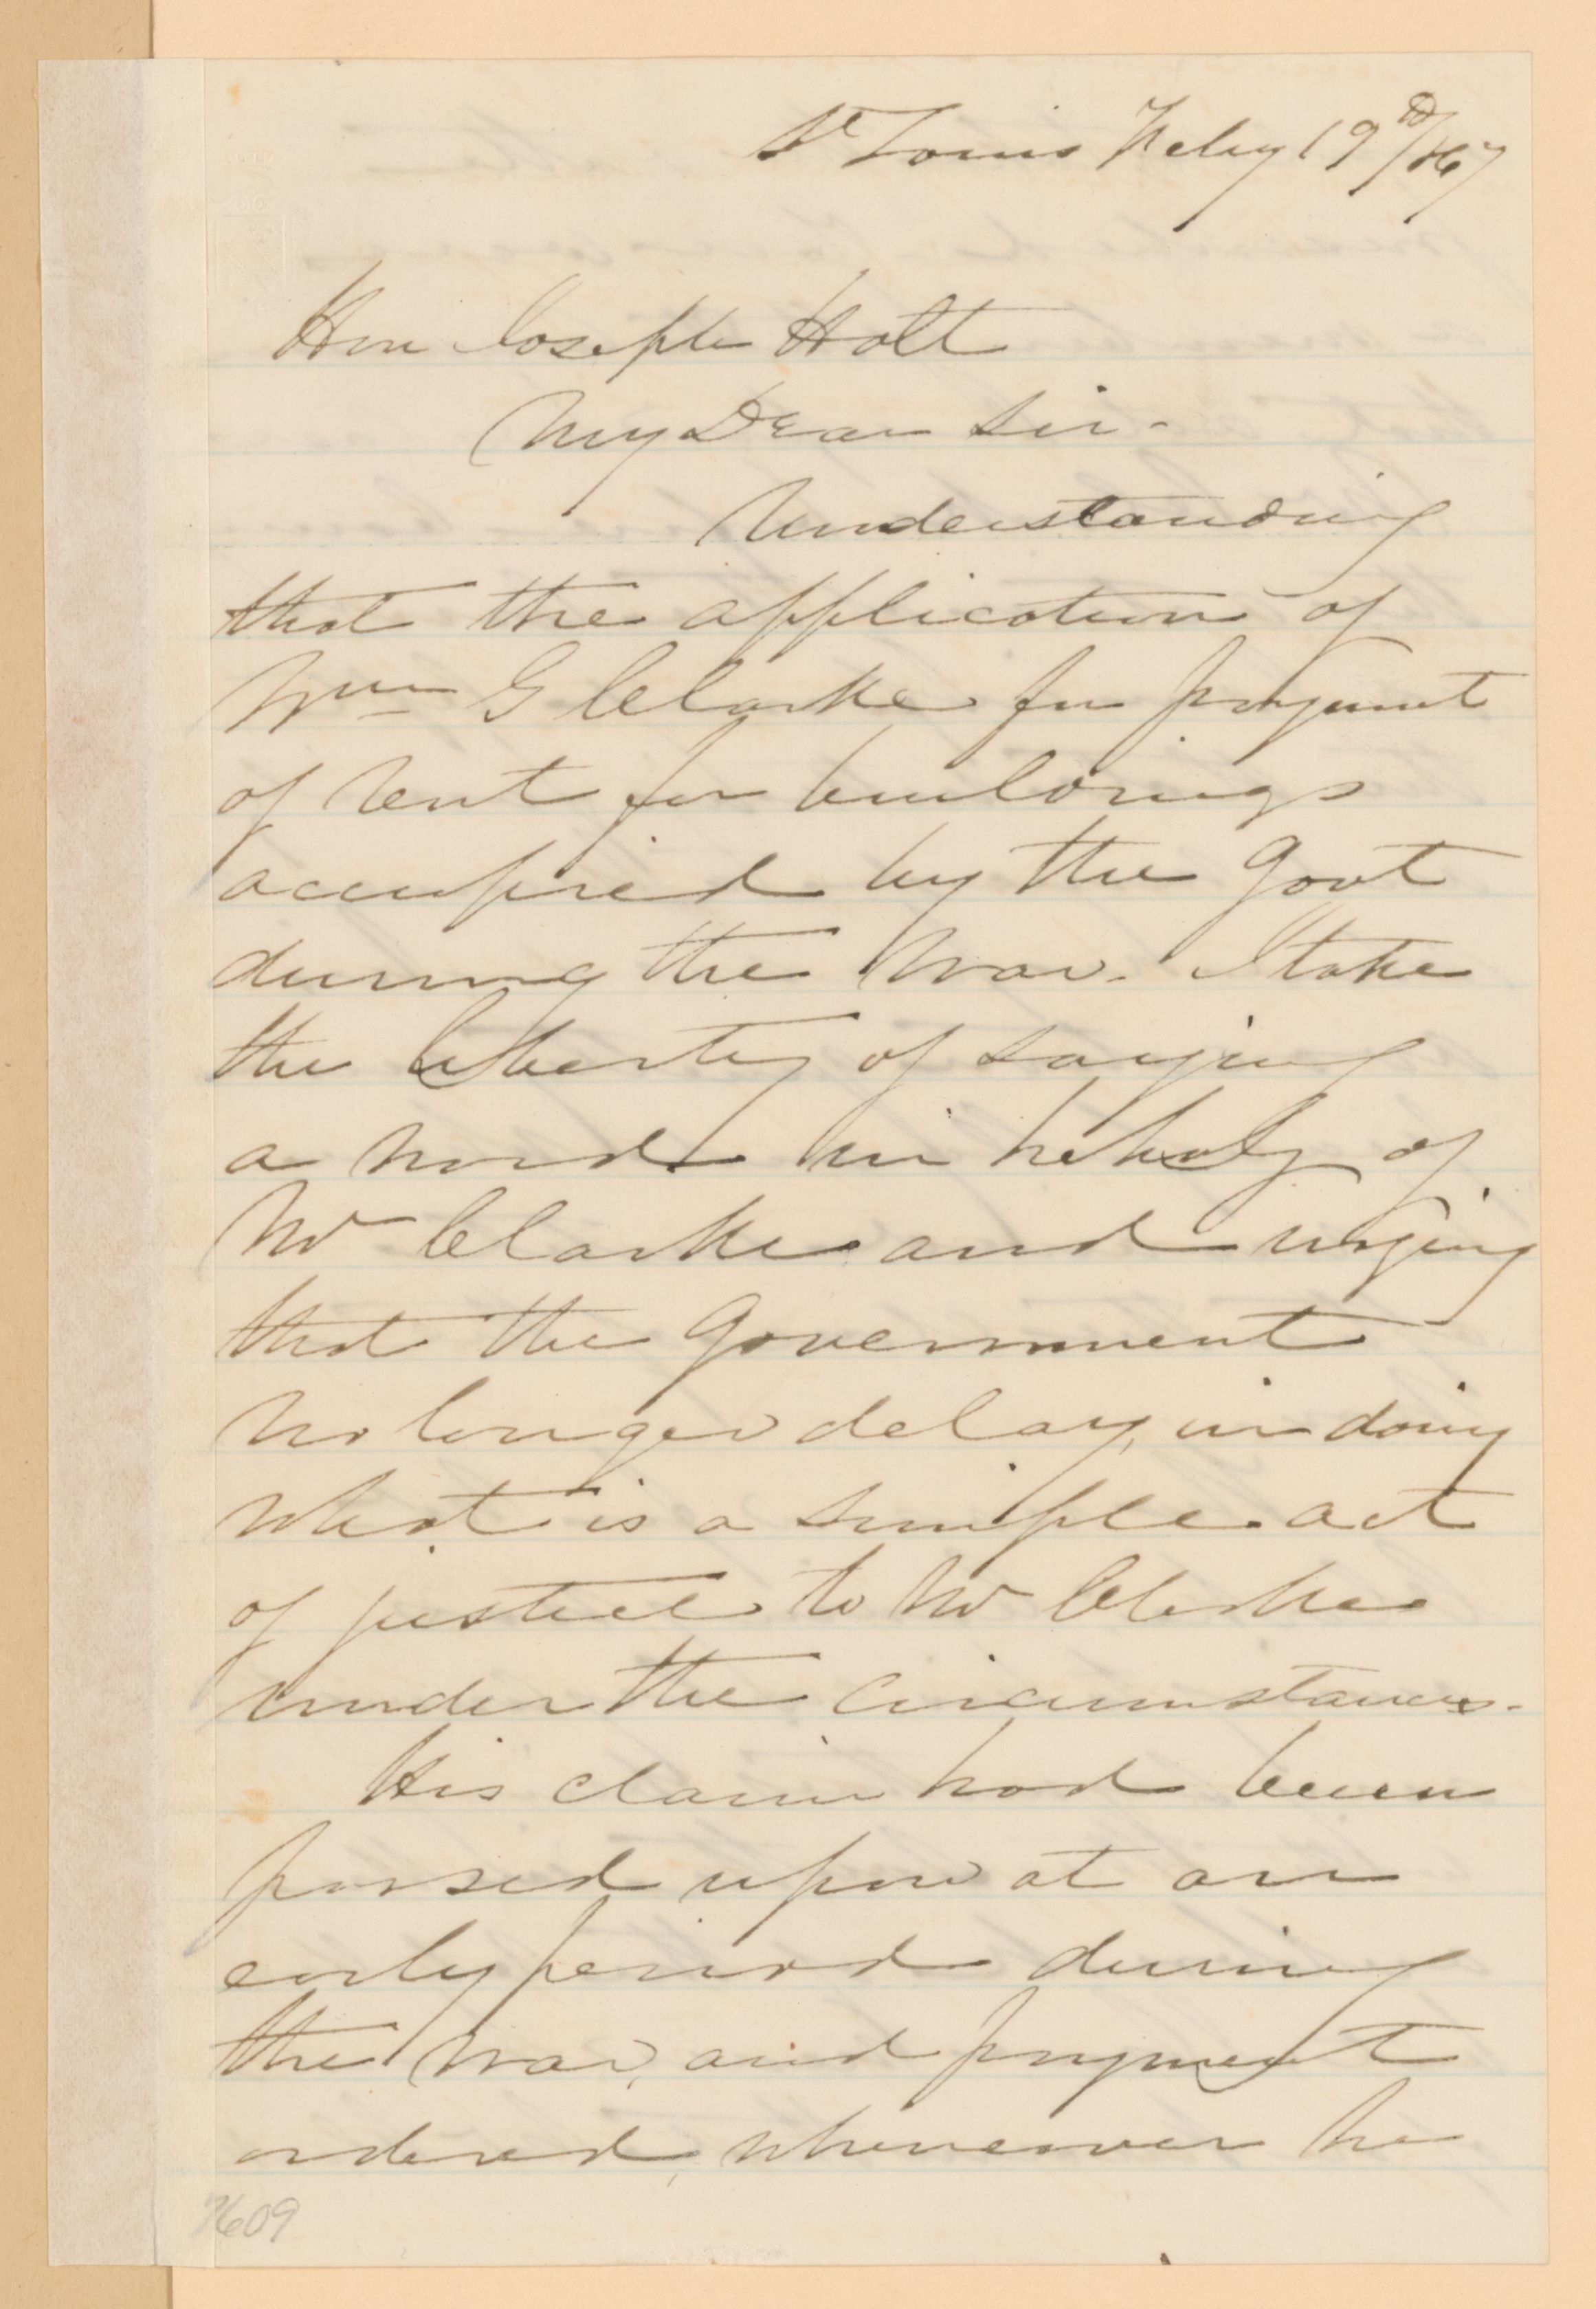 St Louis Feby 19th/67
Hon Joseph Holt
My Dear Sir.
Understanding
that the application of
Wm G Clarke for payment
of rent for buildings
occupied by the Govt
during the War. I take
the liberty of saying
a word in behalf of
Mr Clarke and urging
that the Government
no longer delay, in doing
what is a simple act
of justice to Mr Clarke
under the circumstances.
His claim had been
passed upon at an
early period during
the war, and payment
ordered, whenever he
7609